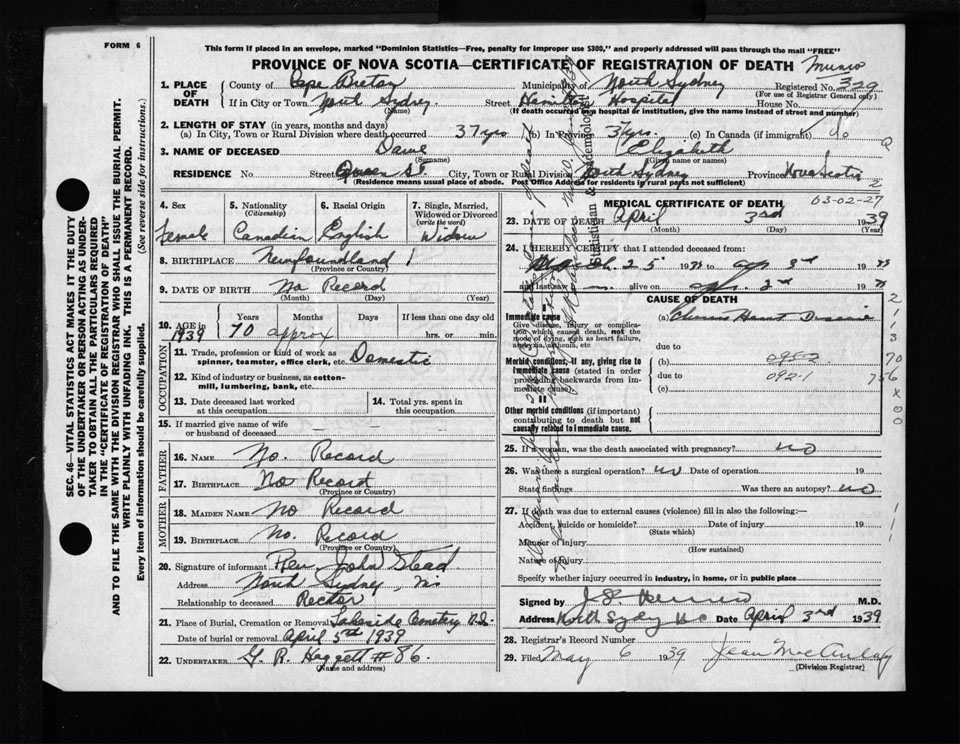 FORM 6
This form if placed in an envelope, marked "Dominion Statistics—Free, penalty for improper use $300," and properly addressed will pass through the mail "FREE"
PROVINCE OF NOVA SCOTIA—CERTIFICATE OF REGISTRATION OF DEATH
1. PLACE OF DEATH
County of Cape Breton Municipality of North Sydney Registered No. 329
(For use of Registrar General only)
If in City or Town North Sydney Street Hamilton Hospital House No.
(If death occurred in a hospital or institution, give the name instead of street and number)
2. LENGTH OF STAY (in years, months and days)
(a) In City, Town or Rural Division where death occurred 37 yrs (b) In Province 37 yrs. (c) In Canada (if immigrant)
3. NAME OF DECEASED Dawe Elizabeth
(Surname) (Given name or names)
RESIDENCE No. Street Queen St. City, Town or Rural Division North Sydney Province Nova Scotia
(Residence means usual place of abode. Post Office Address for residents in rural parts not sufficient)
4. Sex Female
5. Nationality (Citizenship) Canadian
6. Racial Origin English
7. Single, Married, Widowed or Divorced (write the word) Widow
8. BIRTHPLACE Newfoundland 1
(Province or Country)
9. DATE OF BIRTH No Record
(Month) (Day) (Year)
10. AGE in 1939 Years Months Days If less than one day
70 approx hrs. or min.
OCCUPATION
11. Trade, profession or kind of work as spinner, teamster, office clerk, etc. Domestic
12. Kind of industry or business, as cotton-mill, lumbering, bank, etc.
13. Date deceased last worked at this occupation
14. Total yrs. spent in this occupation
15. If married give name of wife or husband of deceased
FATHER
16. Name No. Record
17. Birthplace No Record
(Province or Country)
MOTHER
18. Maiden Name No Record
19. Birthplace No. Record
(Province or Country)
20. Signature of informant Rev. John Stead
Address North Sydney, NS
Relationship to deceased Rector
21. Place of Burial, Cremation or Removal Lakeside Cemetery N.S.
Date of burial or removal April 5th 1939
22. UNDERTAKER G. R. Haggett #86.
(Name and address)
MEDICAL CERTIFICATE OF DEATH 63-02-27
23. DATE OF DEATH April 3rd 1939
(Month) (Day) (Year)
24. I HEREBY CERTIFY that I attended deceased from:
March 25 19 to 3rd 19
and last saw alive on 2nd 19
CAUSE OF DEATH
Immediate cause
Give disease, injury or complication which caused death, not the mode of dying, such as heart failure, asphyxia, asthenia, etc.
(a) Chronic Heart Disease
due to
(b) 095-2
Morbid conditions, if any, giving rise to immediate cause (stated in order proceeding backwards from immediate cause).
due to 092-1
(c)
II
Other morbid conditions (if important) contributing to death but not causally related to immediate cause.
25. If a woman, was the death associated with pregnancy? no
26. Was there a surgical operation? no Date of operation 19
State findings Was there an autopsy? no
27. If death was due to external causes (violence) fill in also the following:—
Accident, suicide or homicide? Date of injury 19
(State which)
Manner of injury
(How sustained)
Nature of injury
Specify whether injury occurred in industry, in home, or in public place
Signed by M.D.
Address North Sydney Date April 3rd 1939
28. Registrar's Record Number
29. Filed May 6 1939 Jean MacAulay
(Division Registrar)
SEC. 46—VITAL STATISTICS ACT MAKES IT THE DUTY
OF THE UNDERTAKER OR PERSON ACTING AS UNDER-
TAKER TO OBTAIN ALL THE PARTICULARS REQUIRED
IN THE "CERTIFICATE OF REGISTRATION OF DEATH"
AND TO FILE THE SAME WITH THE DIVISION REGISTRAR WHO SHALL ISSUE THE BURIAL PERMIT.
WRITE PLAINLY WITH UNFADING INK. THIS IS A PERMANENT RECORD.
Every item of information should be carefully supplied. (See reverse side for instructions.)